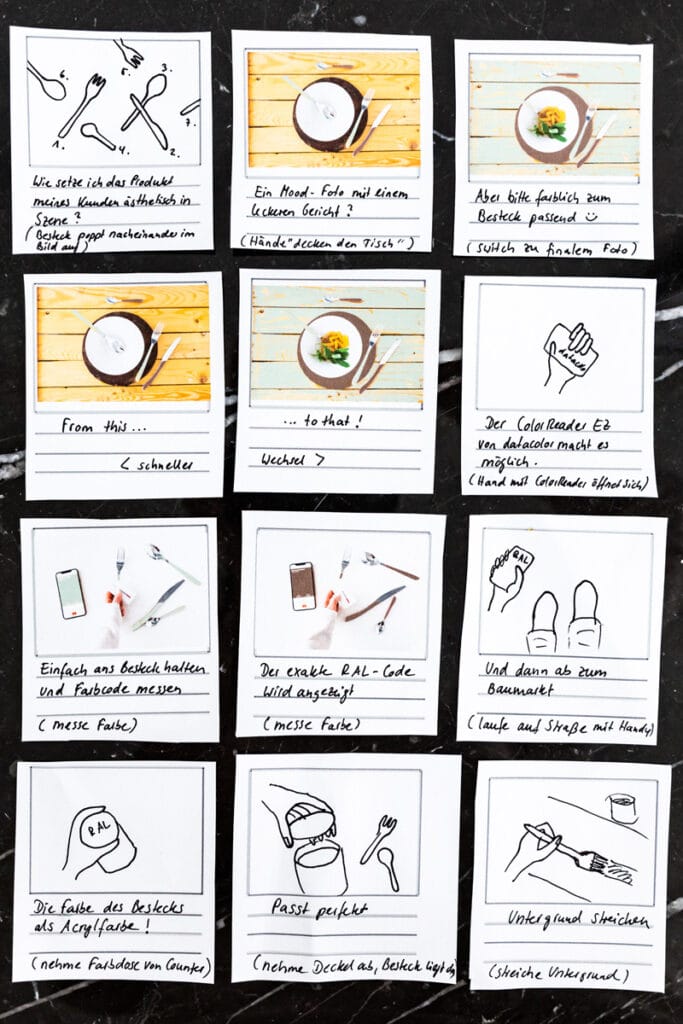 6. 5. 3.
7.
1. 4. 2.
Wie setze ich das Produkt
meines Kunden ästhetisch in
Szene?
(Besteck poppt nacheinander im
Bild auf)
Ein Mood-Foto mit einem
leckeren Gericht?
(Hände "decken den Tisch")
Aber bitte farblich zum
Besteck passend ☺
(switch zu finalem Foto)
From this...
< schneller
... to that!
Wechsel >
datacolor
Der ColorReader EZ
von datacolor macht es
möglich.
(Hand mit ColorReader öffnet sich)
Einfach ans Besteck halten
und Farbcode messen
(messe Farbe)
Der exakte RAL-Code
wird angezeigt
(messe Farbe)
RAL
Und dann ab zum
Baumarkt
(laufe auf Straße mit Handy)
RAL
Die Farbe des Bestecks
als Acrylfarbe!
(nehme Farbdose von Counter)
Passt perfekt
(nehme Deckel ab, Besteck liegt da)
Untergrund streichen
(streiche Untergrund)